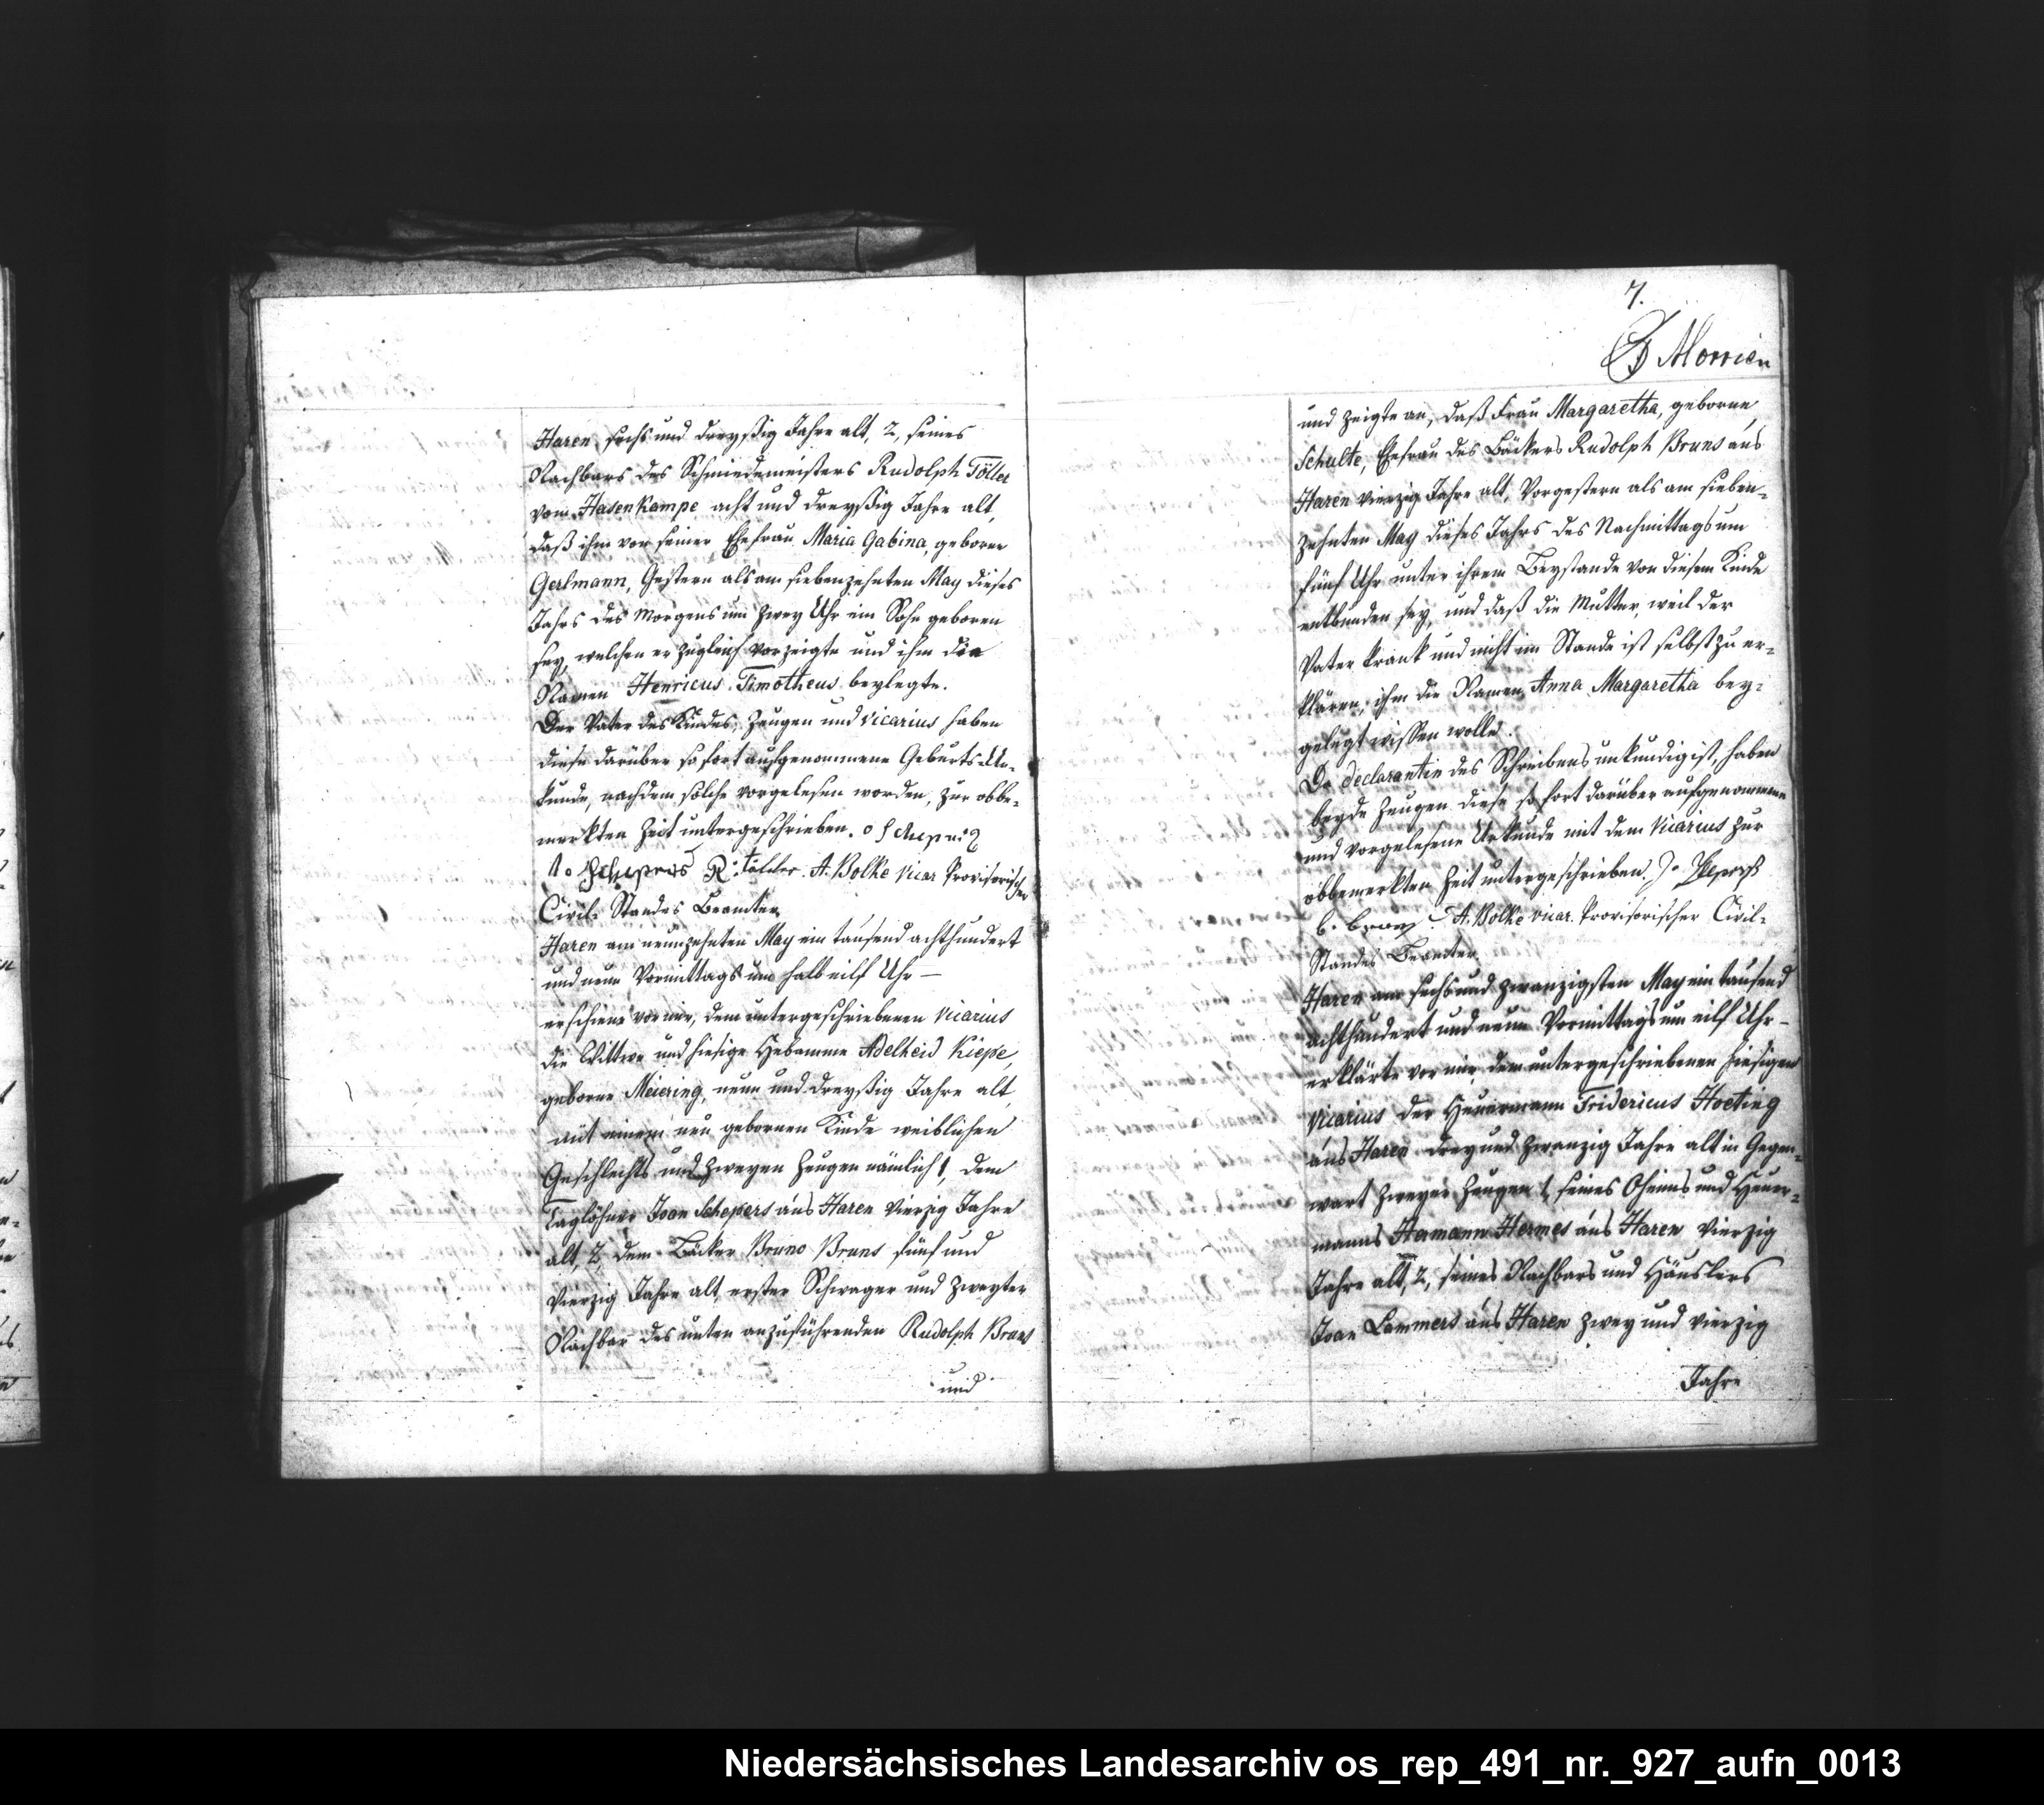 Haren sechs und dreyßig Jahre alt, 2, seines
Nachbars des Schmiedemeisters Rudolph Töller
vom Hasenkampe acht und dreyßig Jahre alt,
daß ihm von seiner Ehefrau Maria Gabina, geborne
Gerlmann, Gestern als am siebenzehnten May dieses
Jahrs des Morgens um zwey Uhr ein Sohn geboren
sey, welchen er zugleich vorzeigte und ihm die
Namen Henricus Timotheus beylegte.
Der Vater des Kindes, Zeugen und Vicarius haben
diese darüber so fort aufgenommene Geburts-Ur-
kunde, nachdem solche vorgelesen worden, zur obbe-
merkten Zeit untergeschrieben.
Schepers R: töller. A. Bolke vicar Provisorischer
Civil-Standes Beamter
Haren am neunzehnten May ein tausend achthundert
und neun Vormittags um halb eilf Uhr –
erschiene vor mir, dem untergeschriebenen Vicarius
die Wittwe und hiesige Hebamme Adelheid Kiepe,
geborne Meiering, neun und dreyßig Jahre alt,
mit einem neu gebornen Kinde weiblichen
Geschlechts und zweyen Zeugen nämlich 1, dem
Taglöhner Joan Schepers aus Haren vierzig Jahre
alt, 2, dem Bäcker Bruno Bruns fünf und
vierzig Jahre alt, erster Schwager und zweyter
Nachbar des unten anzuführenden Rudolph Bruns
und
7.
Morrien
und zeigte an, daß Frau Margaretha, geborne
Schulte, Ehefrau des Bäckers Rudolph Bruns aus
Haren vierzig Jahre alt, Vorgestern als am sieben-
zehnten May dieses Jahrs des Nachmittags um
fünf Uhr unter ihrem Beystande von diesem Kinde
entbunden sey, und daß die Mutter, weil der
Vater krank und nicht im Stande ist selbst zu er-
klären, ihm die Namen Anna Margaretha bey-
gelegt wissen wolle.
Da declarantin des Schreibens unkundig ist, haben
beyde Zeugen diese so fort darüber aufgenommene
und vorgelesene Urkunde mit dem Vicarius zur
obbemerkten Zeit untergeschrieben. J. Schepers
b. bruns. A. Bolke vicar. Provisorischer Civil-
Standes Beamter
Haren am sechs und zwanzigsten May ein tausend
achthundert und neun Vormittags um eilf Uhr –
erklärte vor mir, dem untergeschriebenen hiesigen
Vicarius der Heuermann Fridericus Hoeting
aus Haren drey und zwanzig Jahre alt in Gegen-
wart zweyer Zeugen 1, seines Oheims und Heuer-
manns Hermann Hermes aus Haren vierzig
Jahre alt, 2, seines Nachbars und Häuslers
Joan Lammers aus Haren zwey und vierzig
Jahre
Niedersächsisches Landesarchiv os_rep_491_nr._927_aufn_0013